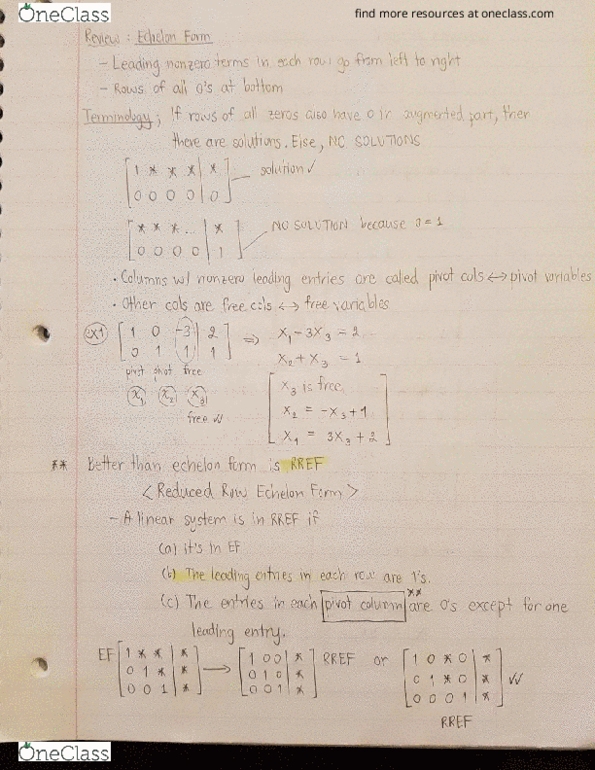 OneClass
find more resources at oneclass.com
Review: Echelon Form
- Leading nonzero terms in each row go from left to right
- Rows of all 0's at bottom
Terminology: If rows of all zeros also have 0 in augmented part, then
there are solutions. Else, NO SOLUTIONS
[ 1 * * * | * ]
[ 0 0 0 0 | 0 ] solution ✓
[ * * * ... | * ] NO SOLUTION because 0 = 1
[ 0 0 0 0 | 1 ]
· Columns w/ nonzero leading entries are called pivot cols ↔ pivot variables
· Other cols are free cols ↔ free variables
EX1 [ 1 0 -3 | 2 ] ⇒ x₁ - 3x₃ = 2
[ 0 1 1 | 1 ] x₂ + x₃ = 1
pivot pivot free
x₁ x₂ x₃
free
x₃ is free
x₂ = -x₃ + 1
x₁ = 3x₃ + 2
** Better than echelon form is RREF
<Reduced Row Echelon Form>
- A linear system is in RREF if
(a) it's in EF
(b) The leading entries in each row are 1's.
(c) The entries in each pivot column ** are 0's except for one
leading entry.
EF [ 1 * * | * ] → [ 1 0 0 | * ] RREF or [ 1 0 * 0 | * ]
[ 0 1 * | * ] [ 0 1 0 | * ] [ 0 1 * 0 | * ]
[ 0 0 1 | * ] [ 0 0 1 | * ] [ 0 0 0 1 | * ]
RREF
OneClass